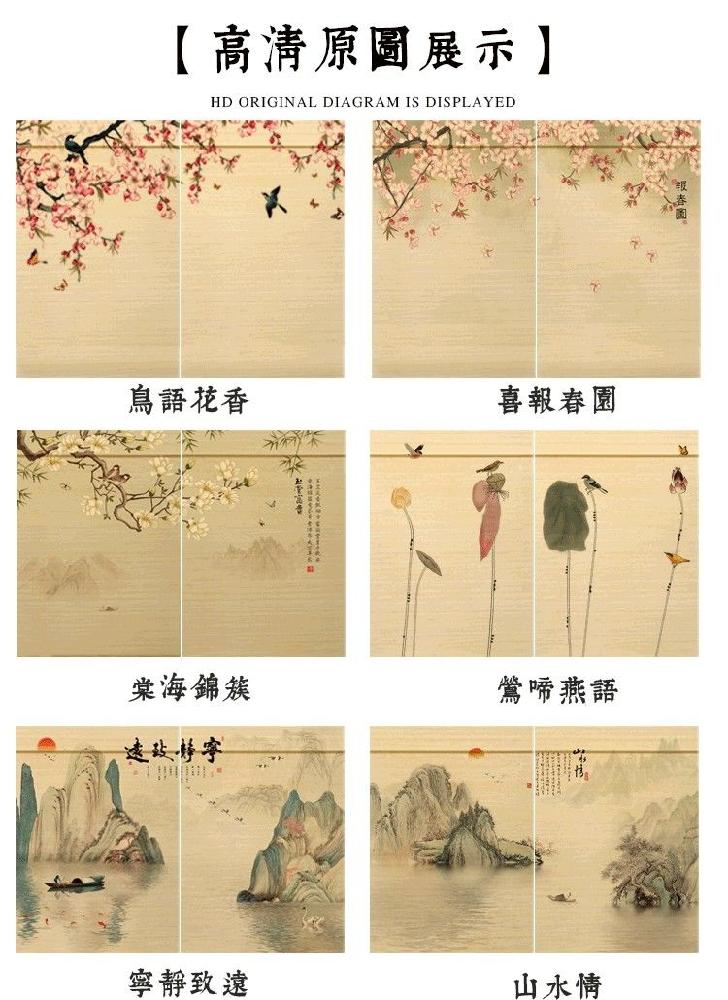 【高清原圖展示】
HD ORIGINAL DIAGRAM IS DISPLAYED
報春圖
鳥語花香
喜報春園
玉堂富貴
棠海錦簇
鶯啼燕語
寧靜致遠
山水情
寧靜致遠
山水情